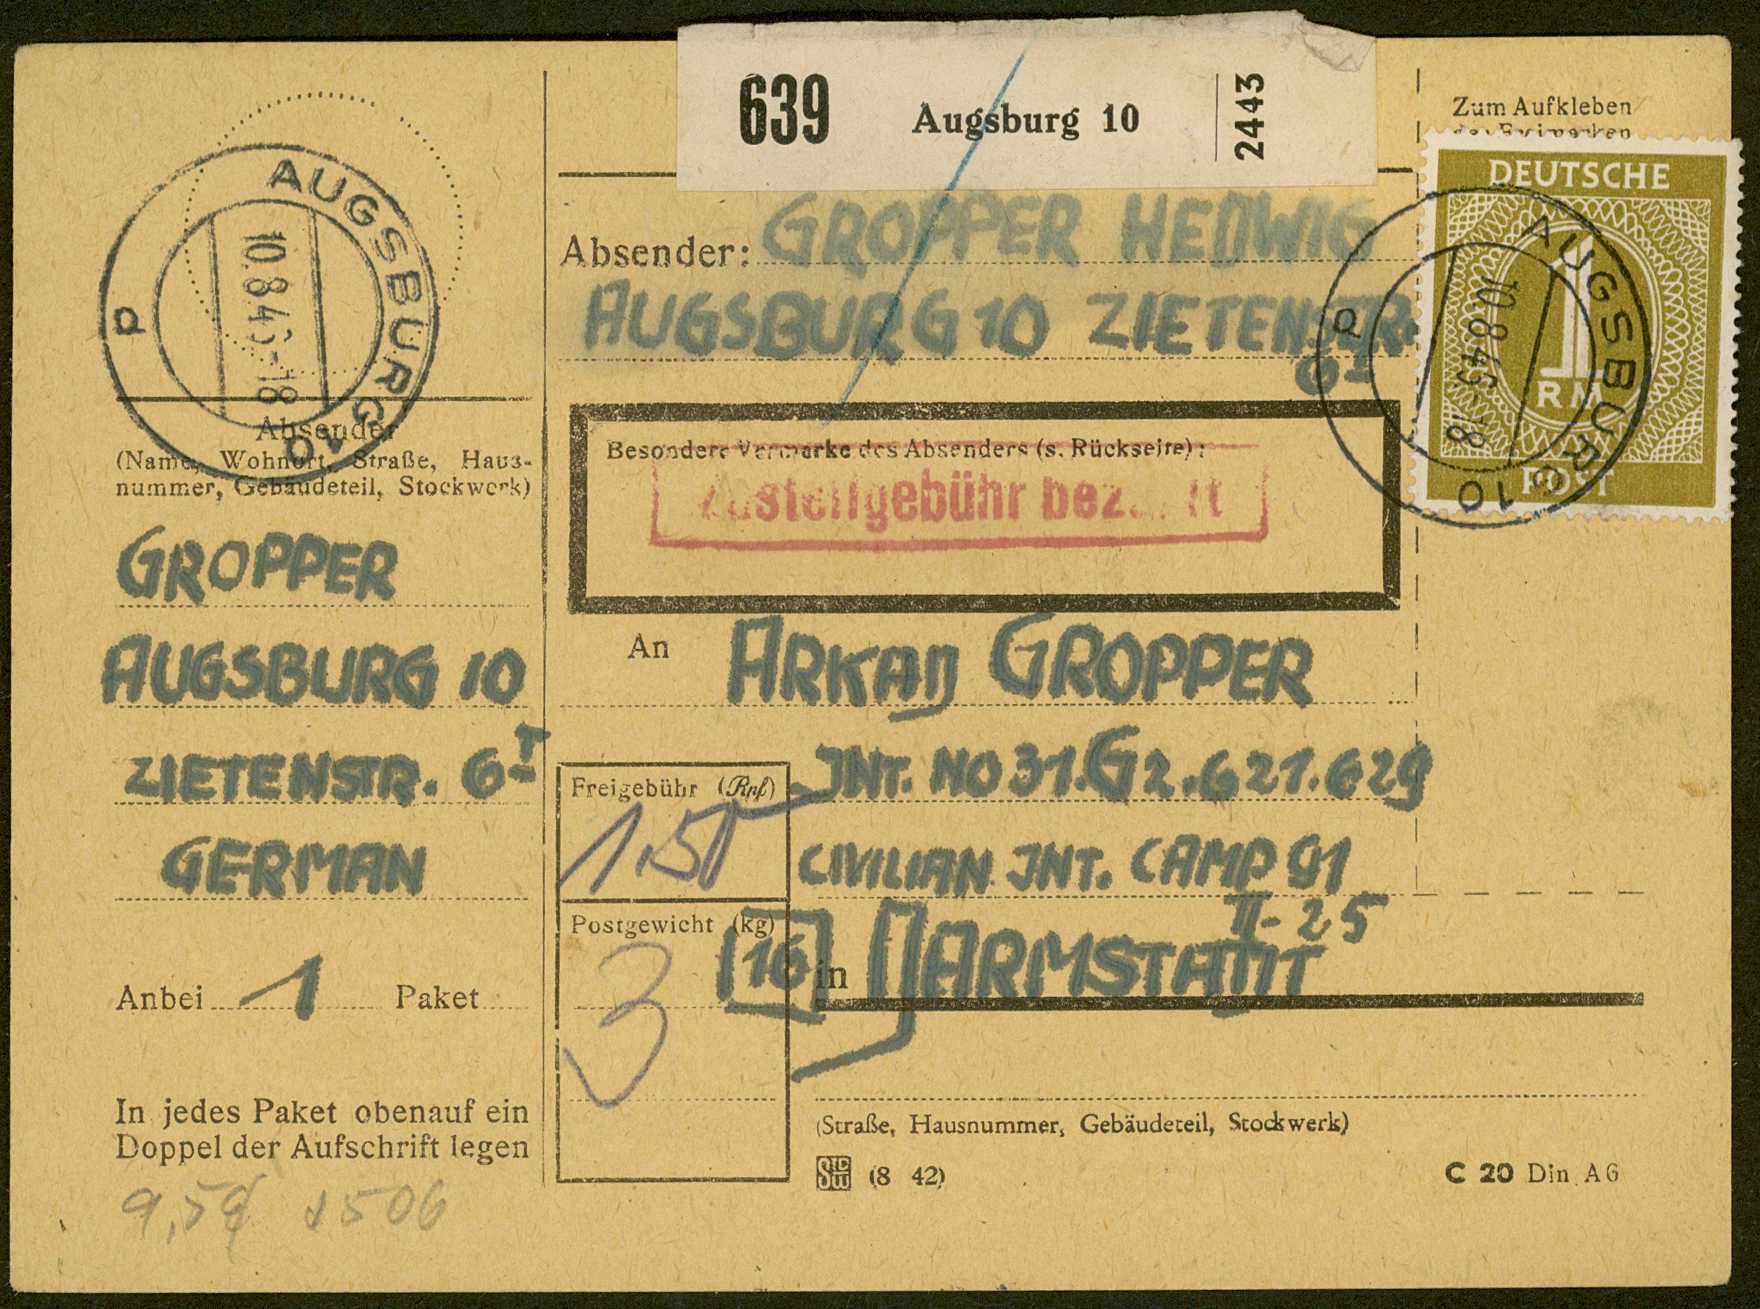 639 Augsburg 10 2443
Zum Aufkleben
der Freimarken
DEUTSCHE
1
RM
POST
AUGSBURG 10
p
AUGSBURG 10
p
Absender: GROPPER HEDWIG
AUGSBURG 10 ZIETENSTR.
6 I
Absender
(Name, Wohnort, Straße, Haus-
nummer, Gebäudeteil, Stockwerk)
GROPPER
AUGSBURG 10
ZIETENSTR. 6 I
GERMAN
Anbei 1 Paket
In jedes Paket obenauf ein
Doppel der Aufschrift legen
Besondere Vermerke des Absenders (s. Rückseite):
Zustellgebühr bezahlt
An ARKAD GROPPER
INT. NO 31.G2.621.629
CIVILIAN INT. CAMP 91
II-25
[16] in DARMSTADT
Freigebühr (Rpf)
1,50
Postgewicht (kg)
3
(Straße, Hausnummer, Gebäudeteil, Stockwerk)
(8 42)
C 20 Din A6